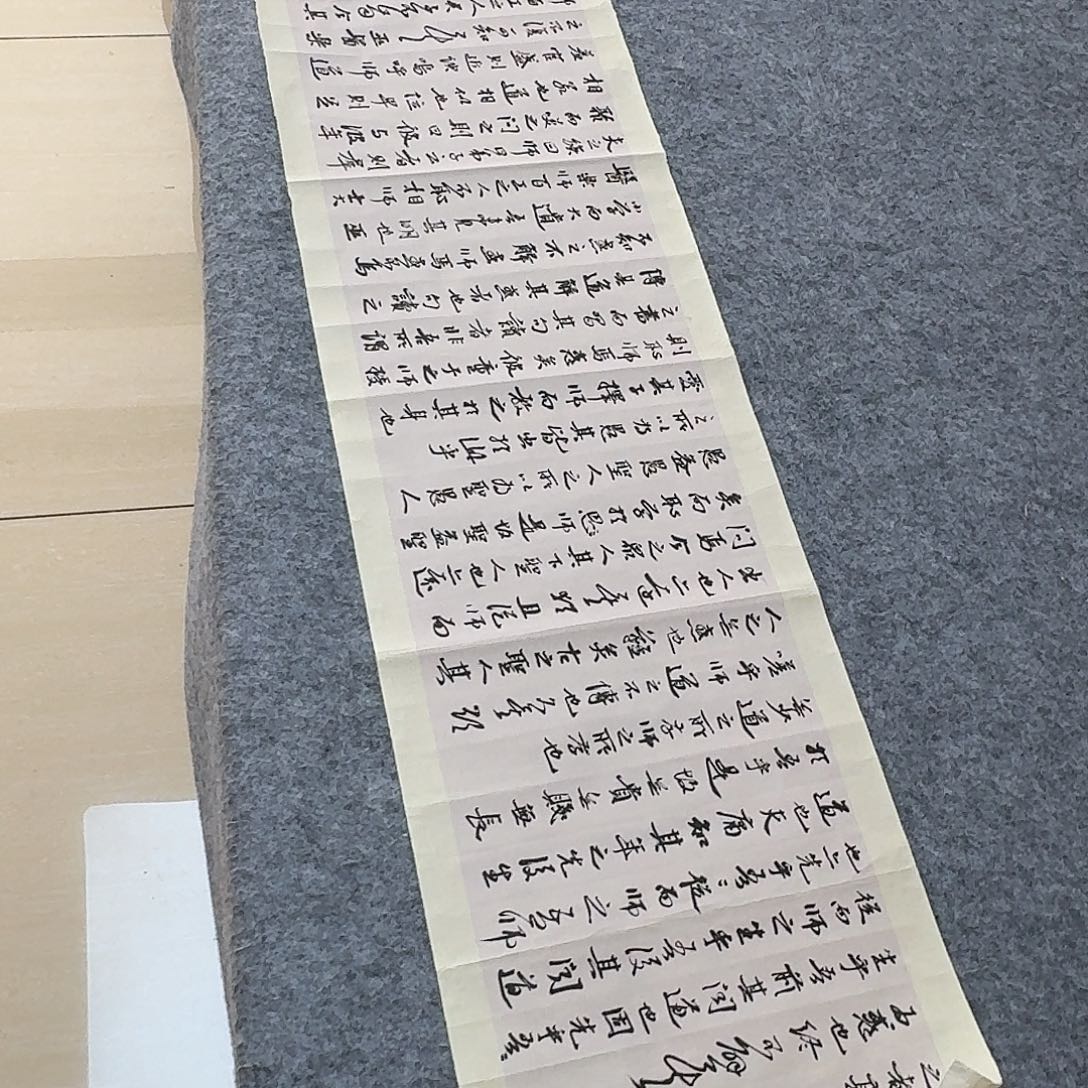 為惑也終不解矣
生乎吾前其聞道也固先乎吾
從而師之生乎吾後其聞道
也亦先乎吾吾從而師之吾師
道也夫庸知其年之先後生
於吾乎是故無貴無賤無長
無少道之所存師之所存也
嗟乎師道之不傳也久矣欲
人之無惑也難矣古之聖人其
出人也亦遠矣猶且從師而
問焉今之眾人其下聖人也亦遠
矣而恥學於師是故聖益聖
愚益愚聖人之所以為聖愚人
之所以為愚其皆出於此乎
愛其子擇師而教之於其身也
則恥師焉惑矣彼童子之師授
之書而習其句讀者非吾所謂
傳其道解其惑者也句讀之
不知惑之不解或師焉或不焉
小學而大遺吾未見其明也巫
醫樂師百工之人不恥相師士大
夫之族曰師曰弟子云者則群
聚而笑之問之則曰彼與彼年
相若也道相似也位卑則足
羞官盛則近諛嗚呼師道
之不復可知矣巫醫樂